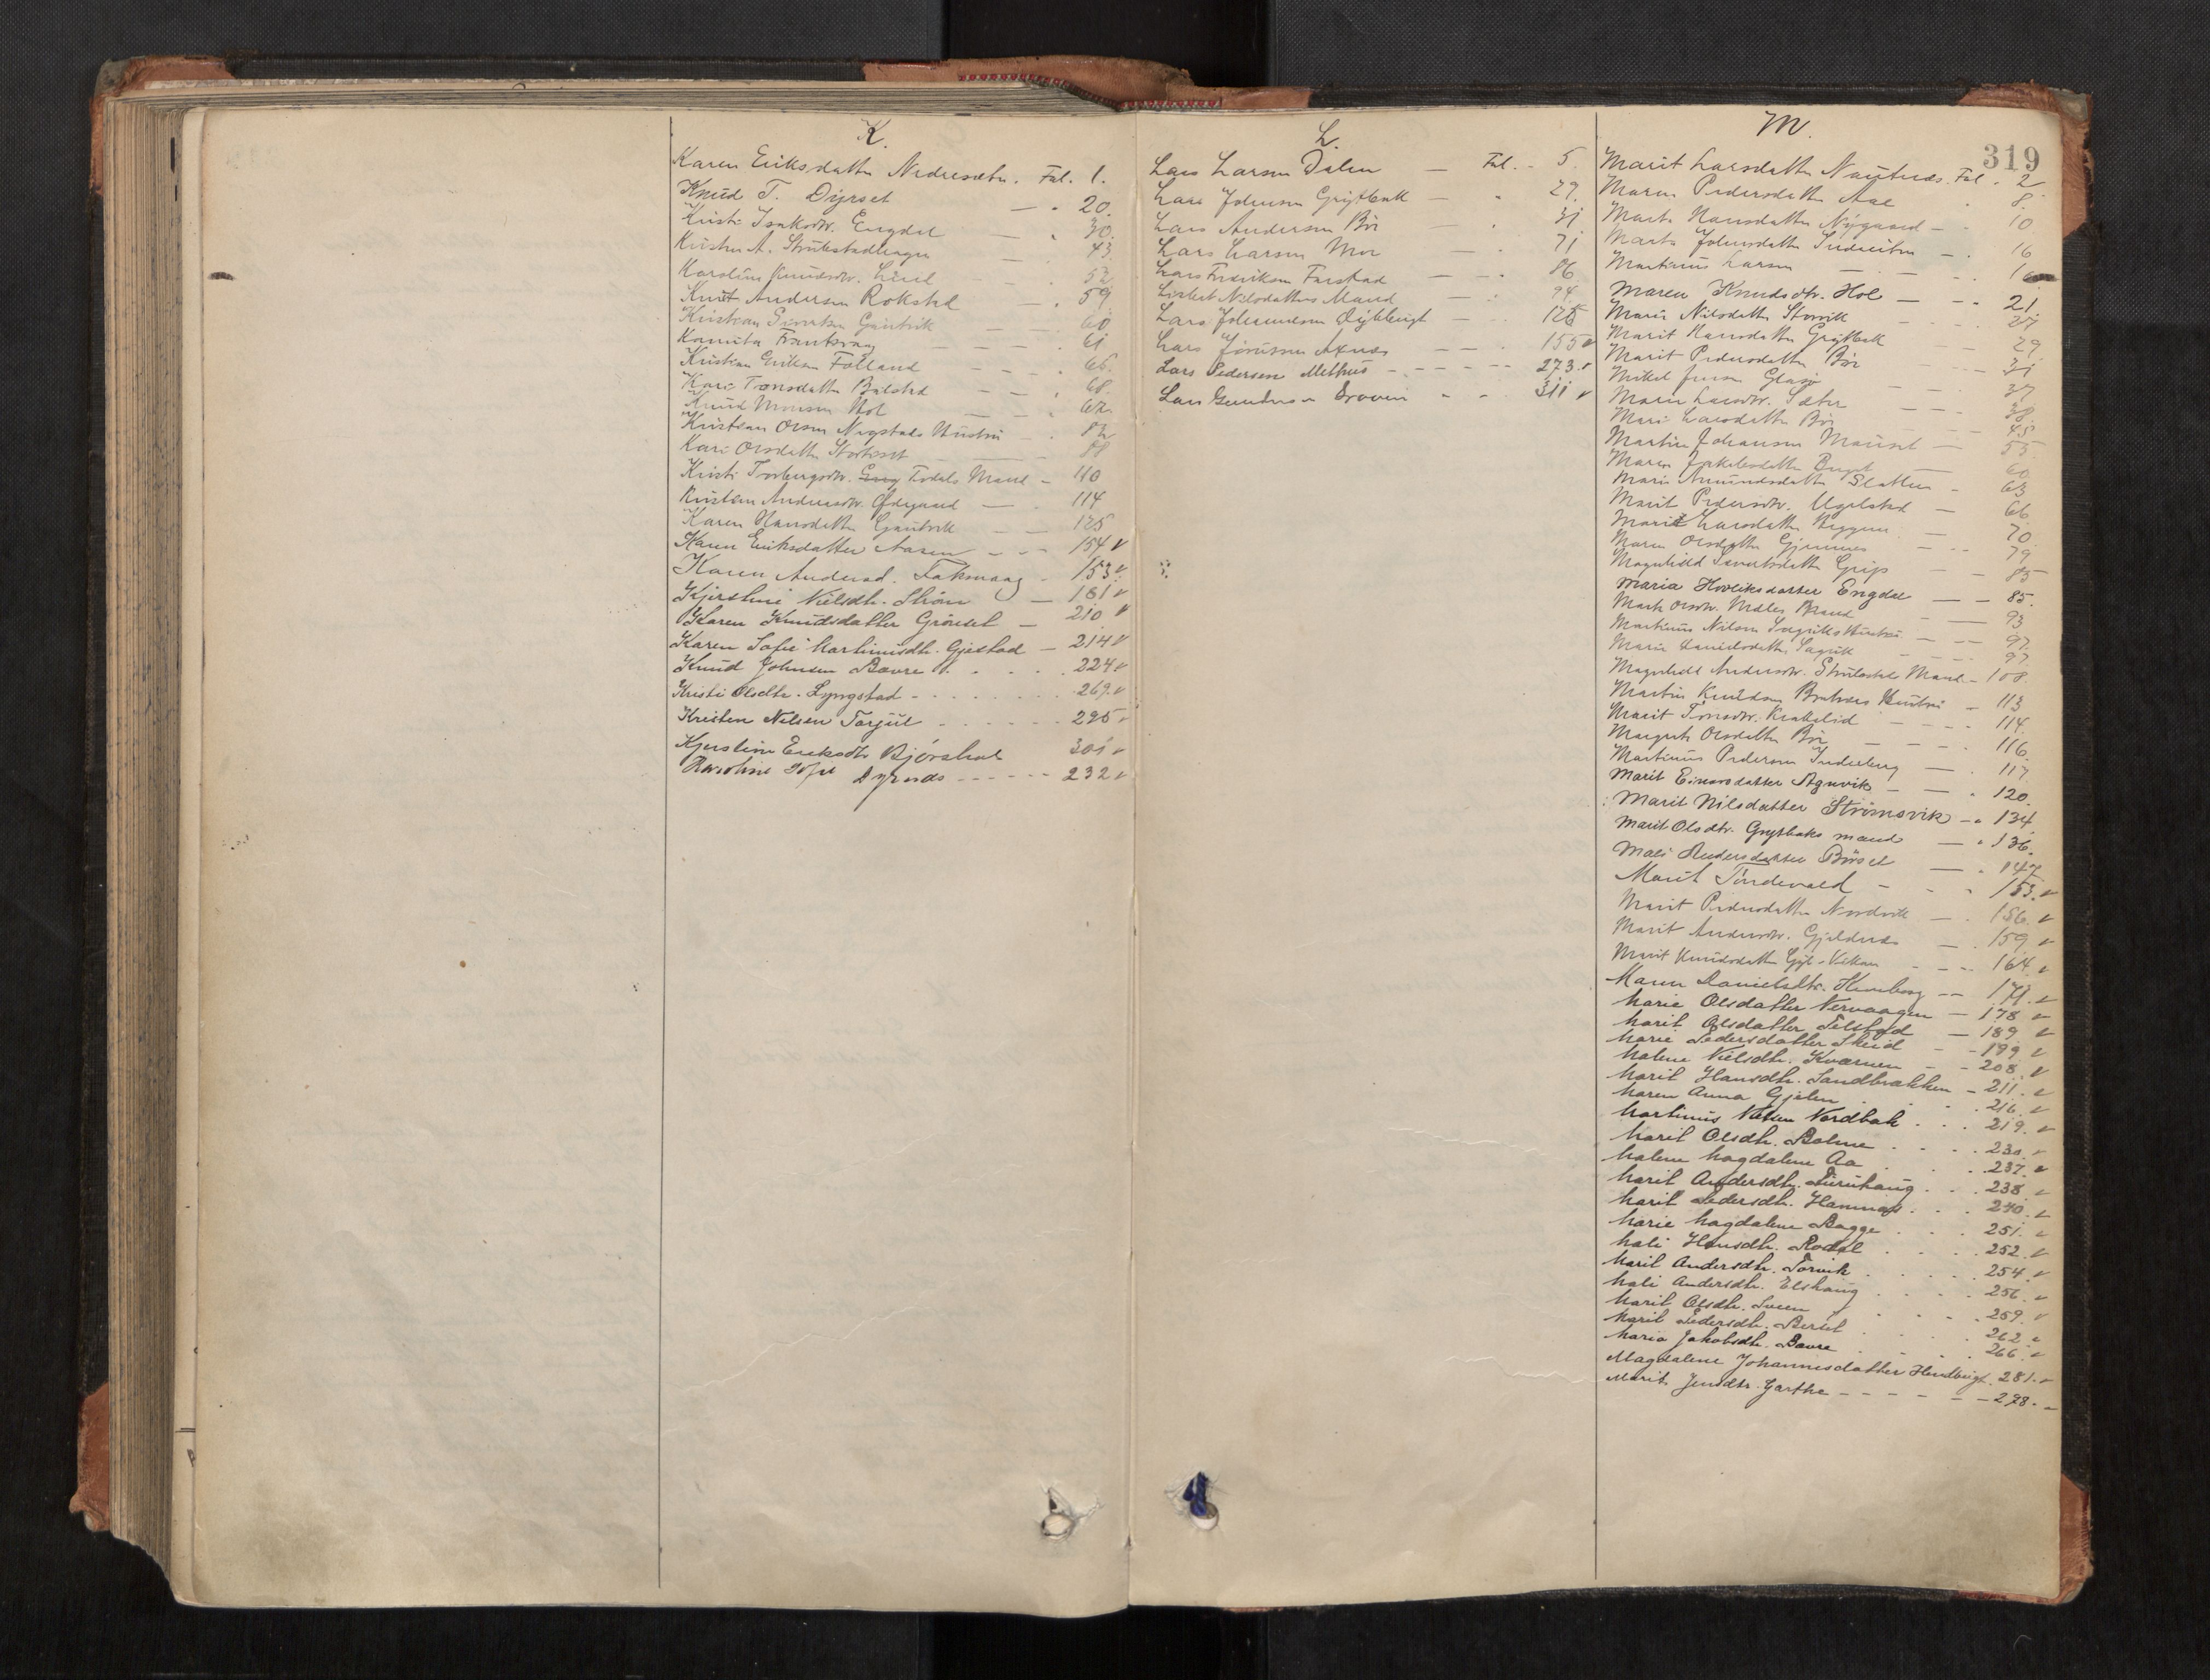 K.
Karen Eriksdatter Nedresæter. Fol. 1.
Knud T. Dyrset — " 20.
Kristi Isaksdtr. Engdal — " 30.
Kristen A. — 43.
Karoline Knudsdtr. — 52
Knut Andersen Rokstad — " 59.
Kristian Gautvik — 60
— 61
Kristian Eriksen Folland — 65.
Kari Tronsdatter Bolstad — 68.
Knud Monsen Hol — 62.
Kristian Olsen Nygstads Hustru — 82
Kari Olsdatter — 88
Kristi Torbergsdtr. Todals Mand — 110
Kristian Andersdtr. Ødegaard — 114
Karen Hansdatter Gautvik — 125
Karen Eriksdatter Aasen — 154 v
Karen Andersd. Taknaag — 153 v.
Kjerstine Nielsdtr. Strøm — 181 v
Karen Knudsdatter Grönset — 210 v
Karen Sofie Martinusdtr. Gjestad — 214 v
Knud Johnsen Bævre . . . . 224 v
Kristi Olsdtr. Lyngstad - - - - 269. v
Kristen Nelsen Torjul - - - - 295 v
Kjerstine Eriksdtr Bjørshol 301 v
Karoline Sofie Dyrnæs - - - - 232 v
L.
Lars Larsen Dalen — Fol. - 5.
Lars Johnsen Grytbak — " 29.
Lars Andersen Bör — " 31
Lars Larsen Mor — " 71
Lars Fredriksen Farstad — " 86
Lisbet Nilsdatters Mand — " 94.
Lars Johannesen — 125
Lars Axnes — 155 v
Lars Pedersen Melhus - - - - 273. v
Lars Gundersen - - 311 v
M.
319
Marit Larsdatter Nautnes. Fol. 2
Maren Pedersdatter Aae " 8.
Marta Hansdatter Nygaard — . 10.
Marta Johnsdatter — . 16
Martinus Larsen — 16
Maren Knudsdtr. Hol — - " 21.
Marie Nilsdatter Storvik - 27
Marit Hansdatter Grytbak — 29
Marit Pedersdatter Bör — 31
Mikal Jensen Glasø — 37
Maren Larsdtr. Sæter — 38.
Mari Larsdatter Bör — 45
Martin Johansen — 55.
Maren Jakobsdatter — 60
Marie Amundsdatter Slatten — 63
Marit Pedersdtr. Ugelstad — 66
Marit Larsdatter Heggem — 70.
Maren Olsdatter Gjemnes — 79
Magnhild Sivertsdatter Grip — 85
Maria Hovliksdatter Engdal — — 85.
Marta Olsdtr. Mand — 93
Martinus Nilsen Hustru — 97.
Marie Danielsdatter — 97
Magnhild Andersdtr. Mand — 108.
Martin Knudsen Hustru — 113
Marit Tönsdtr. — 114.
Margrete Olsdatter Bör — 116.
Martinus Pedersen Inderberg — . 117
Marit Einarsdatter Agnvik — — " 120.
Marit Nilsdatter Strömsvik — " 134
Marit Olsdtr. Grytbaks mand — " 136.
Mali Andersdatter Börset — . 147.
Marit Tøndevold - - - 153. v
Marit Pedersdatter Nordvik — . 156. v
Marit Andersdtr. Gjeldnes — . 159 v
Marit Knudsdatter — 164. v
Maren Danielsdtr. — 171. v
Marie Olsdatter Nervaagen — 178 v
Marit Olsdatter Telstad — 189 v
Marie Pedersdatter Skeid - - 199 v
Malene Nielsdtr. Kværnen - - 208. v
Marit Hansdtr. Sandbrækken — 211. v
Maren Anna Gjølen . . . 216. v
Martinus Nilsen Nordbak . . . 219. v
Marit Olsdtr. Bolme . . . 230. v
Malene Magdalene Aa . . . 237. v
Marit Andersdtr. Furuhaug . . . 238. v
Marit Pedersdtr. Hamnes . . . 240. v
Marie Magdalene Bagge . . . 251. v
Mali Hansdtr. Rodal . . . 252. v
Marit Andersdtr. Torvik . . . 254. v
Mali Andersdtr. Elshaug . . . 256. v
Marit Olsdtr. Sveen . . . 259. v
Marit Pedersdtr. Berset . . . 262. v
Maria Jakobsdtr. Bævre . . . 266. v
Magdalene Johannesdatter . 281. v
Marit Jensdtr. Garthe - - - - 298. v